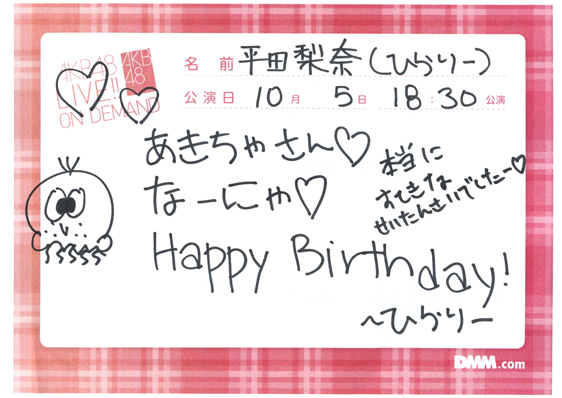 AKB48
LIVE!!
ON DEMAND
AKB
48
名前 平田梨奈(ひらりー)
公演日 10月 5日 18:30公演
あきちゃさん♡
なーにゃ♡
本当に
すてきな
せいたんさいでしたー♡
Happy Birthday!
~ひらりー
DMM.com